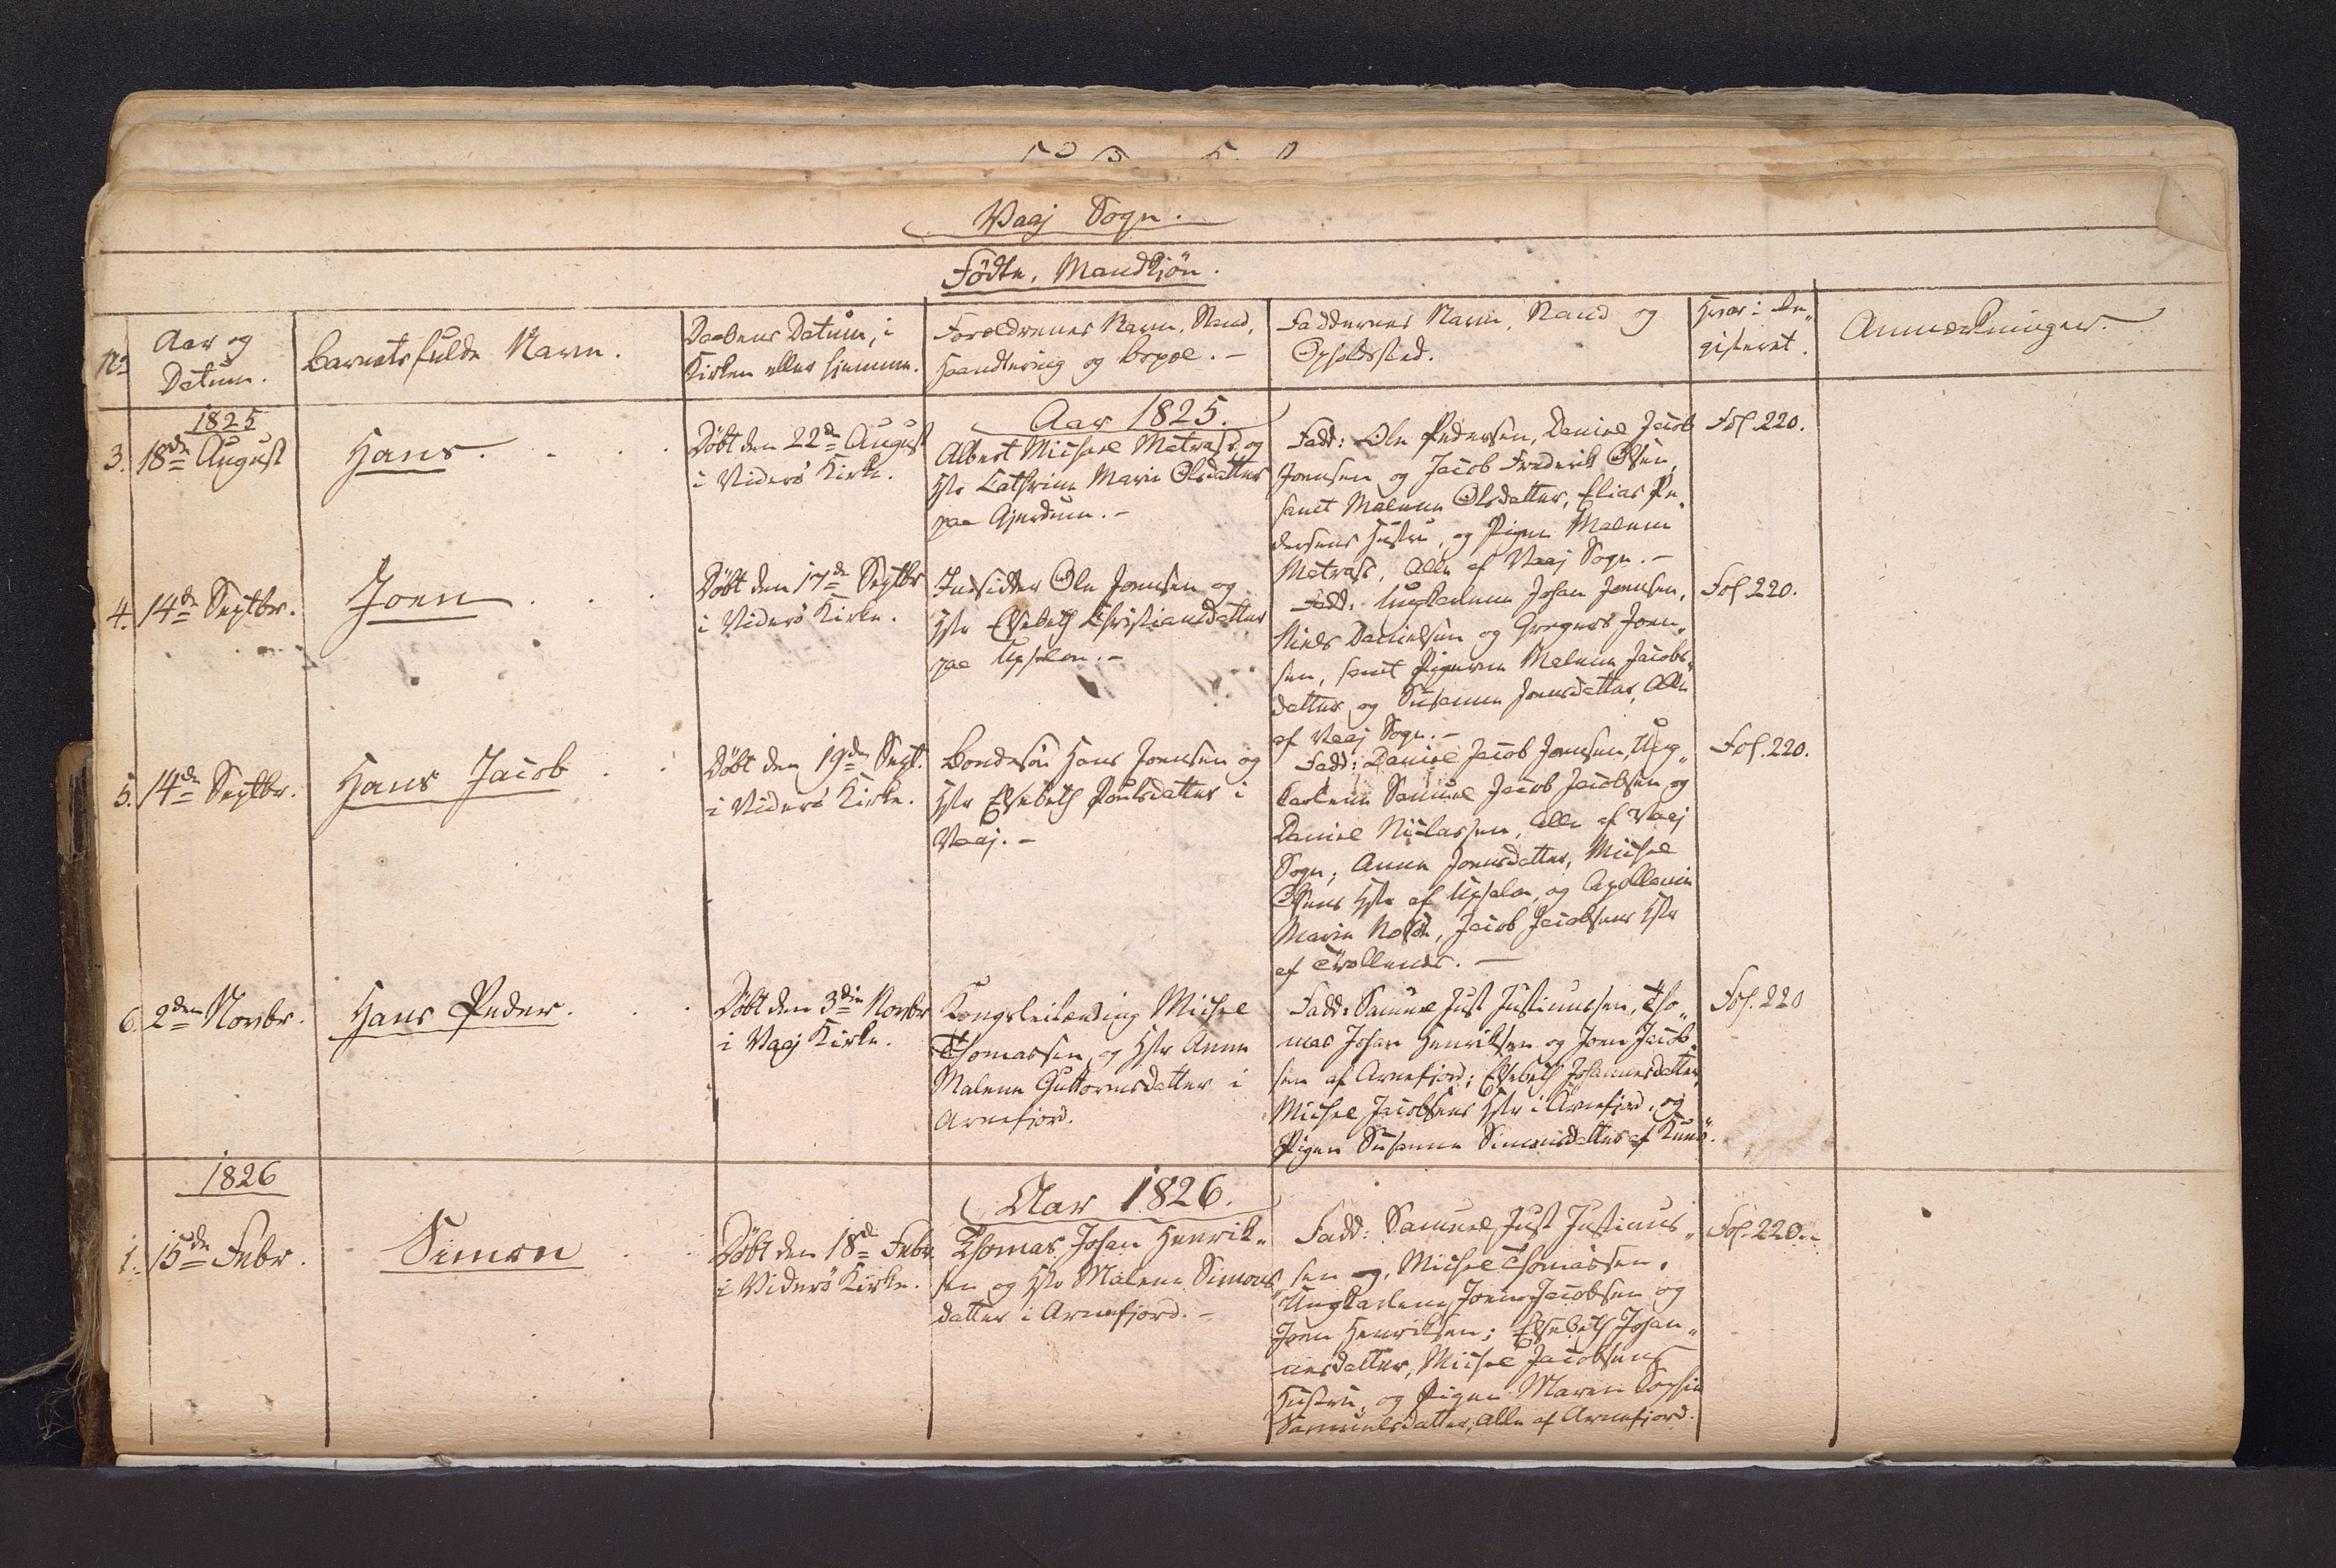 Vaaj Sogn.
Födte, Mandkjön.
No
Aar og
Datum.
Barnets fulde Navn.
Daabens Datum, i
Kirken eller hjemme.
Foroeldrenes Navn, Stand,
Haandtering og Bopoel. -
Faddernes Navn, Stand og
Opholdssted.
Hvor i Re„
gisteret.
Anmoerkninger.
1825
Aar 1825.
3.
18de August
Hans. . . . .
Döbt den 22de August
i Viderö Kirke.
Albert Michael Matras, og
Hstr Cathrine Marie Olsdatter
paa Gjerdum. -
Fadd: Ole Pedersen, Daniel Jacob
Joensen og Jacob Frederik Olsen,
samt Malene Olsdatter, Elias Pe„
dersens Hustru, og Pigen Malene
Matras, Alle af Vaaj Sogn. -
Fol. 220.
4.
14de Septbr.
Joen . . .
Döbt den 17de Septbr
i Viderö Kirke.
Indsidder Ole Joensen og
Hstr Elsebeth Christiansdatter
paa Upsalen. -
Fadd: Ungkarlene Johan Joensen,
Niels Danielsen og Gregers Joen„
sen, samt Pigerne Malene Jacobs„
datter og Susanne Joensdatter, Alle
af Vaaj Sogn. -
Fol. 220.
5.
14de Septbr.
Hans Jacob . .
Döbt den 19de Sept.
i Viderö Kirke.
Bondesön Hans Joensen og
Hstr Elsebeth Poulsdatter i
Vaaj. -
Fadd: Daniel Jacob Joensen, Ung„
karlene Samuel Jacob Jacobsen og
Daniel Niclassen, Alle af Vaaj
Sogn; Anne Joensdatter, Michel
Olsens Hstr af Upsalen, og Apollonie
Marie Jacob Jacobsens Hstr
af Tröllenæs. -
Fol. 220.
6.
2den Novbr.
Hans Peder. . .
Döbt den 3die Novbr
i Vaaj Kirke.
Kongsleilending Michel
Thomassen og Hstr Anne
Malene Guttormsdatter i
Arnefjord.
Fadd: Samuel Just Justinussen, Tho„
mas Johan Henriksen og Joen Jacob„
sen af Arnefjord; Elsebeth Johannesdatter,
Michel Jacobsens Hstr i Arnefjord, og
Pigen Susanne Simonsdatter af Kunö.
Fol. 220
1826
Aar 1826.
1.
15de Febr.
Simon . .
Döbt den 18de Febr.
i Viderö Kirke.
Thomas Johan Henrik„
sen og Hstr Malene Simons
datter i Arnefjord. -
Fadd: Samuel Just Justinus„
sen og Michel Thomassen,
Ungkarlene Joen Jacobsen og
Joen Henriksen; Elsebeth Johan„
nesdatter, Michel Jacobsens
Hustru, og Pigen Maren Sophie
Samuelsdatter, Alle af Arnefjord.
Fol. 220.